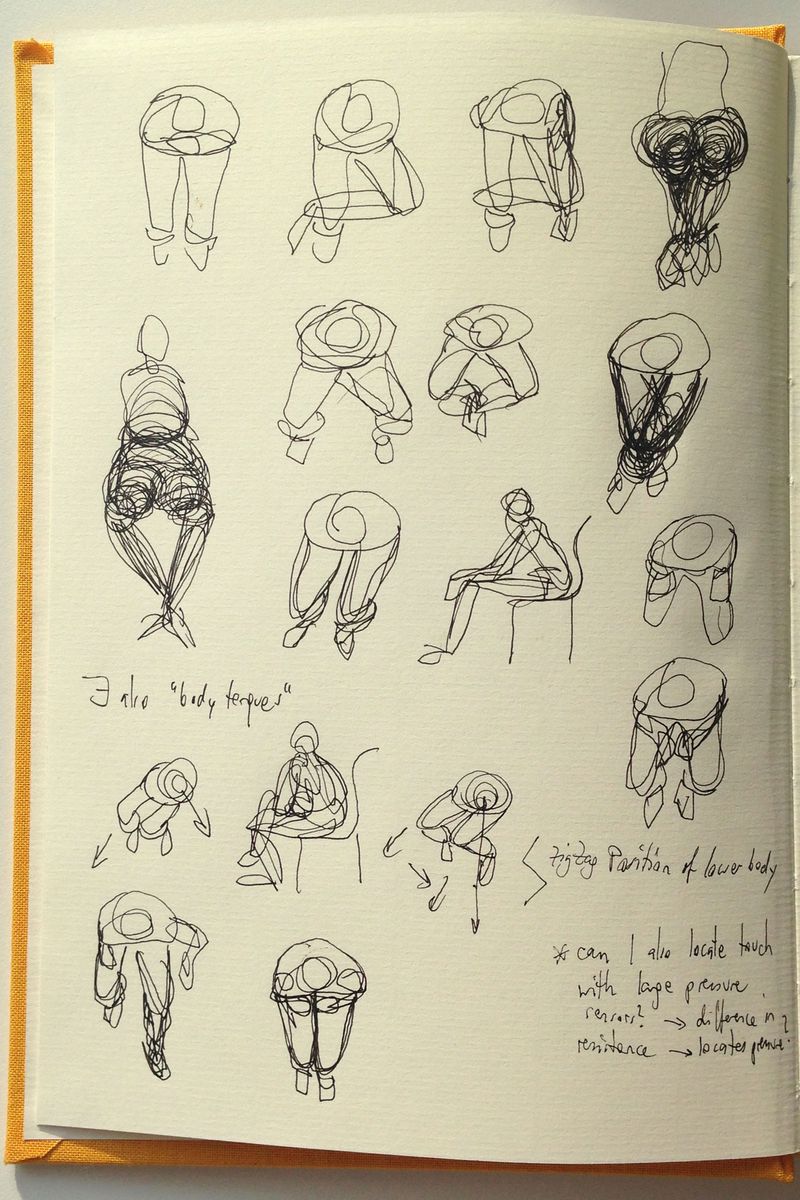 ∃ also "body torques"
zigzag Position of lower body
* can I also locate touch
with large pressure
sensors? → difference in
resistance → locates pressure?